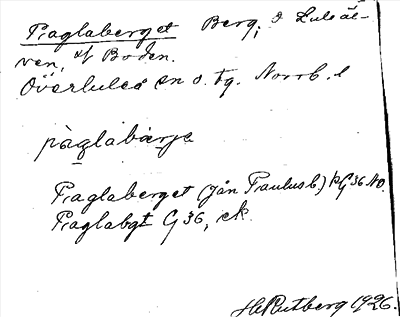 Paglaberget Berg, ö Luleäl-
ven, st Boden.
Överluleå sn o. tg. Norrb. l
pàglabærjɛ
Paglaberget (Jän Paulusb.) kG36 NO.
Paglabgt G36, ek.
H Rutberg 1926.